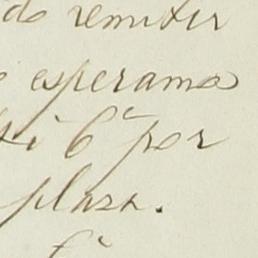 do remitir
esperamos
6 por
plaza.